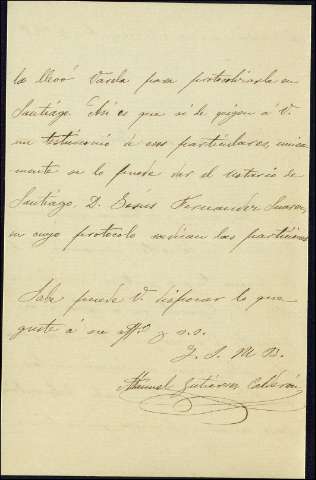 la llevó Varela para protocolizarla en
Santiago. Así es que si le exigen á V.
un testimonio á esos particulares unica
mente se lo puede dar el notario de
Santiago, D. Jesús Fernandez Suarez,
en cuyo protocolo radican las particiones
Sabe puede V. disponer lo que
guste á su affº y s.s.
Q. S. M. B.
Manuel Gutierrez Calderón